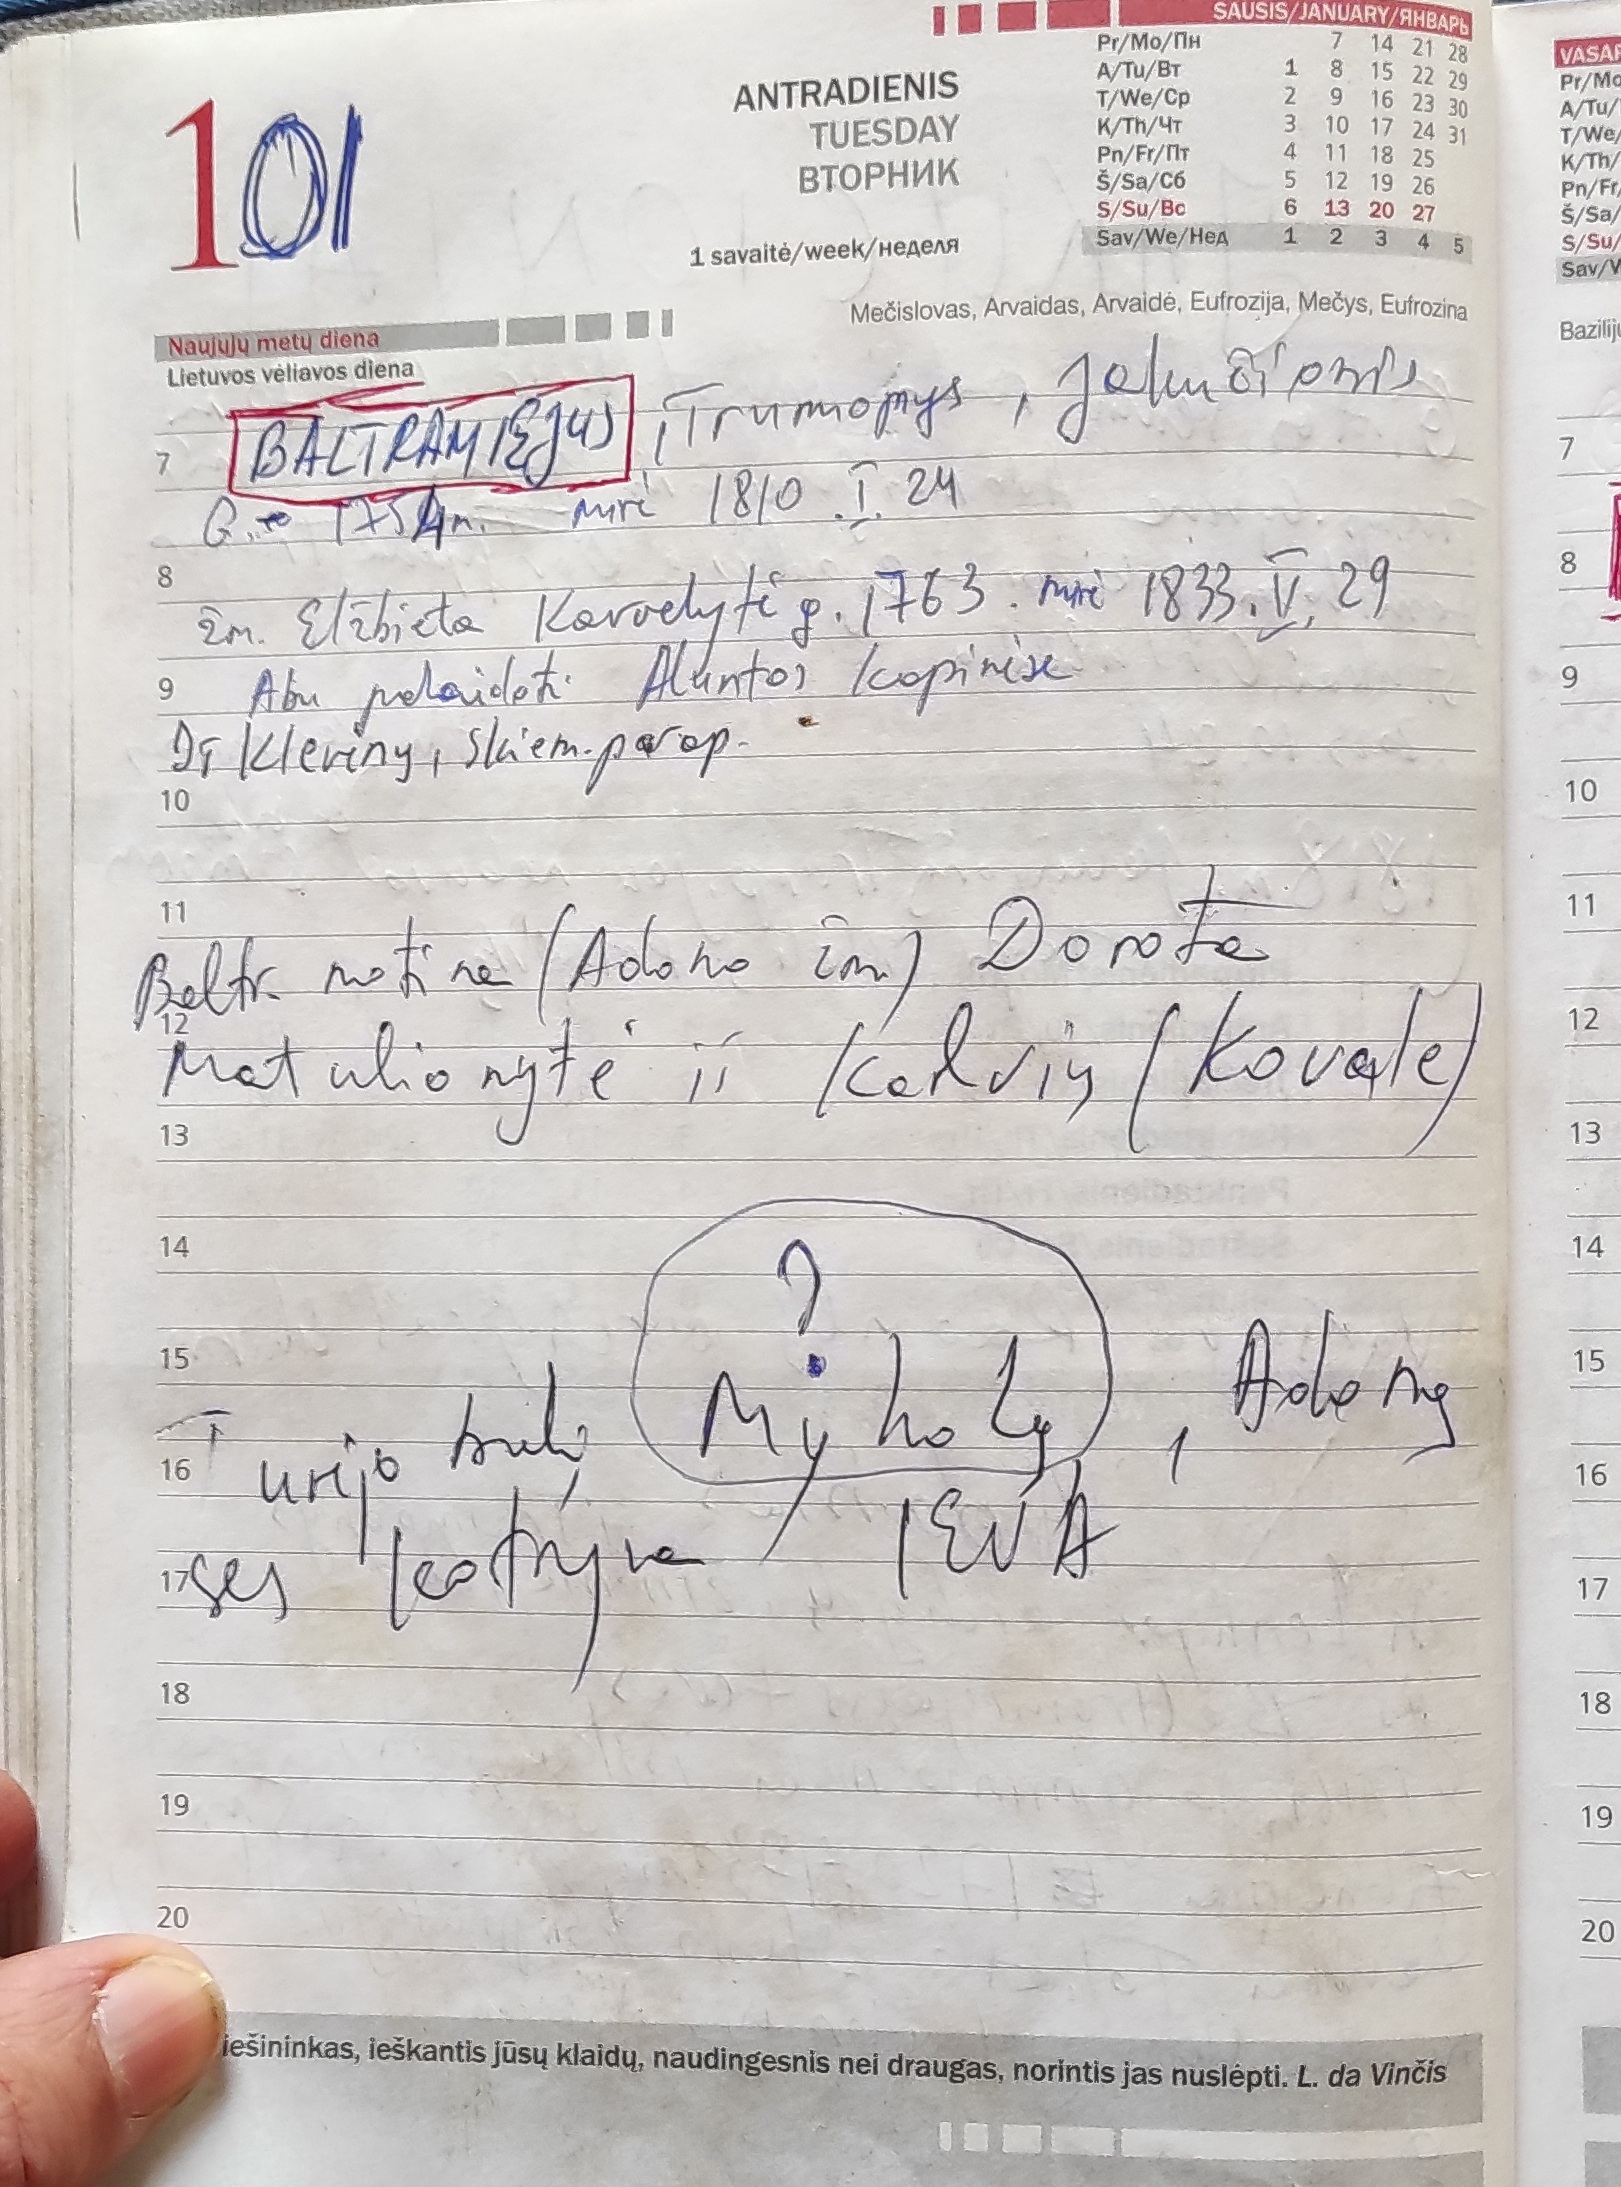 SAUSIS/JANUARY/ЯНВАРЬ
Pr/Mo/Пн 7 14 21 28
A/Tu/Вт 1 8 15 22 29
T/We/Ср 2 9 16 23 30
K/Th/Чт 3 10 17 24 31
Pn/Fr/Пт 4 11 18 25
Š/Sa/Сб 5 12 19 26
S/Su/Вс 6 13 20 27
Sav/We/Нед 1 2 3 4 5
101
ANTRADIENIS
TUESDAY
ВТОРНИК
1 savaitė/week/неделя
Mečislovas, Arvaidas, Arvaidė, Eufrozija, Mečys, Eufrozina
Naujųjų metų diena
Lietuvos vėliavos diena
BALTRAMIEJUS, Trumpopys, Jakučionis
7
G. 1754 m. mirė 1810.I.24
8
žm. Elžbieta Karvelytė g. 1763. mirė 1833.V.29
9 Abu palaidoti Aluntos kapinėse
Iš Klevinų, Skiem. parap.
10
11
Baltr. motina (Adomo žm) Dorota
12
Matulionytė iš Kalvių (Kovale)
13
14
?
15
Turijo brolį Mykolą, Adomą
16
17 ses Kotryna IEVA
18
19
20
iešininkas, ieškantis jūsų klaidų, naudingesnis nei draugas, norintis jas nuslėpti. L. da Vinčis
VASAR
Pr/Mo
A/Tu/
T/We/
K/Th/
Pn/Fr/
Š/Sa/
S/Su/
Sav/V
Bazilijų
7
8
9
10
11
12
13
14
15
16
17
18
19
20